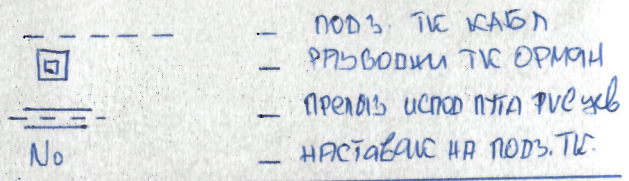 — ПОДЗ. ТК КАБЛ
— РАЗВОДНИ ТК ОРМАН
— ПРЕЛАЗ ИСПОД ПУТА PVC цев
No — НАСТАВАК НА ПОДЗ. ТК.